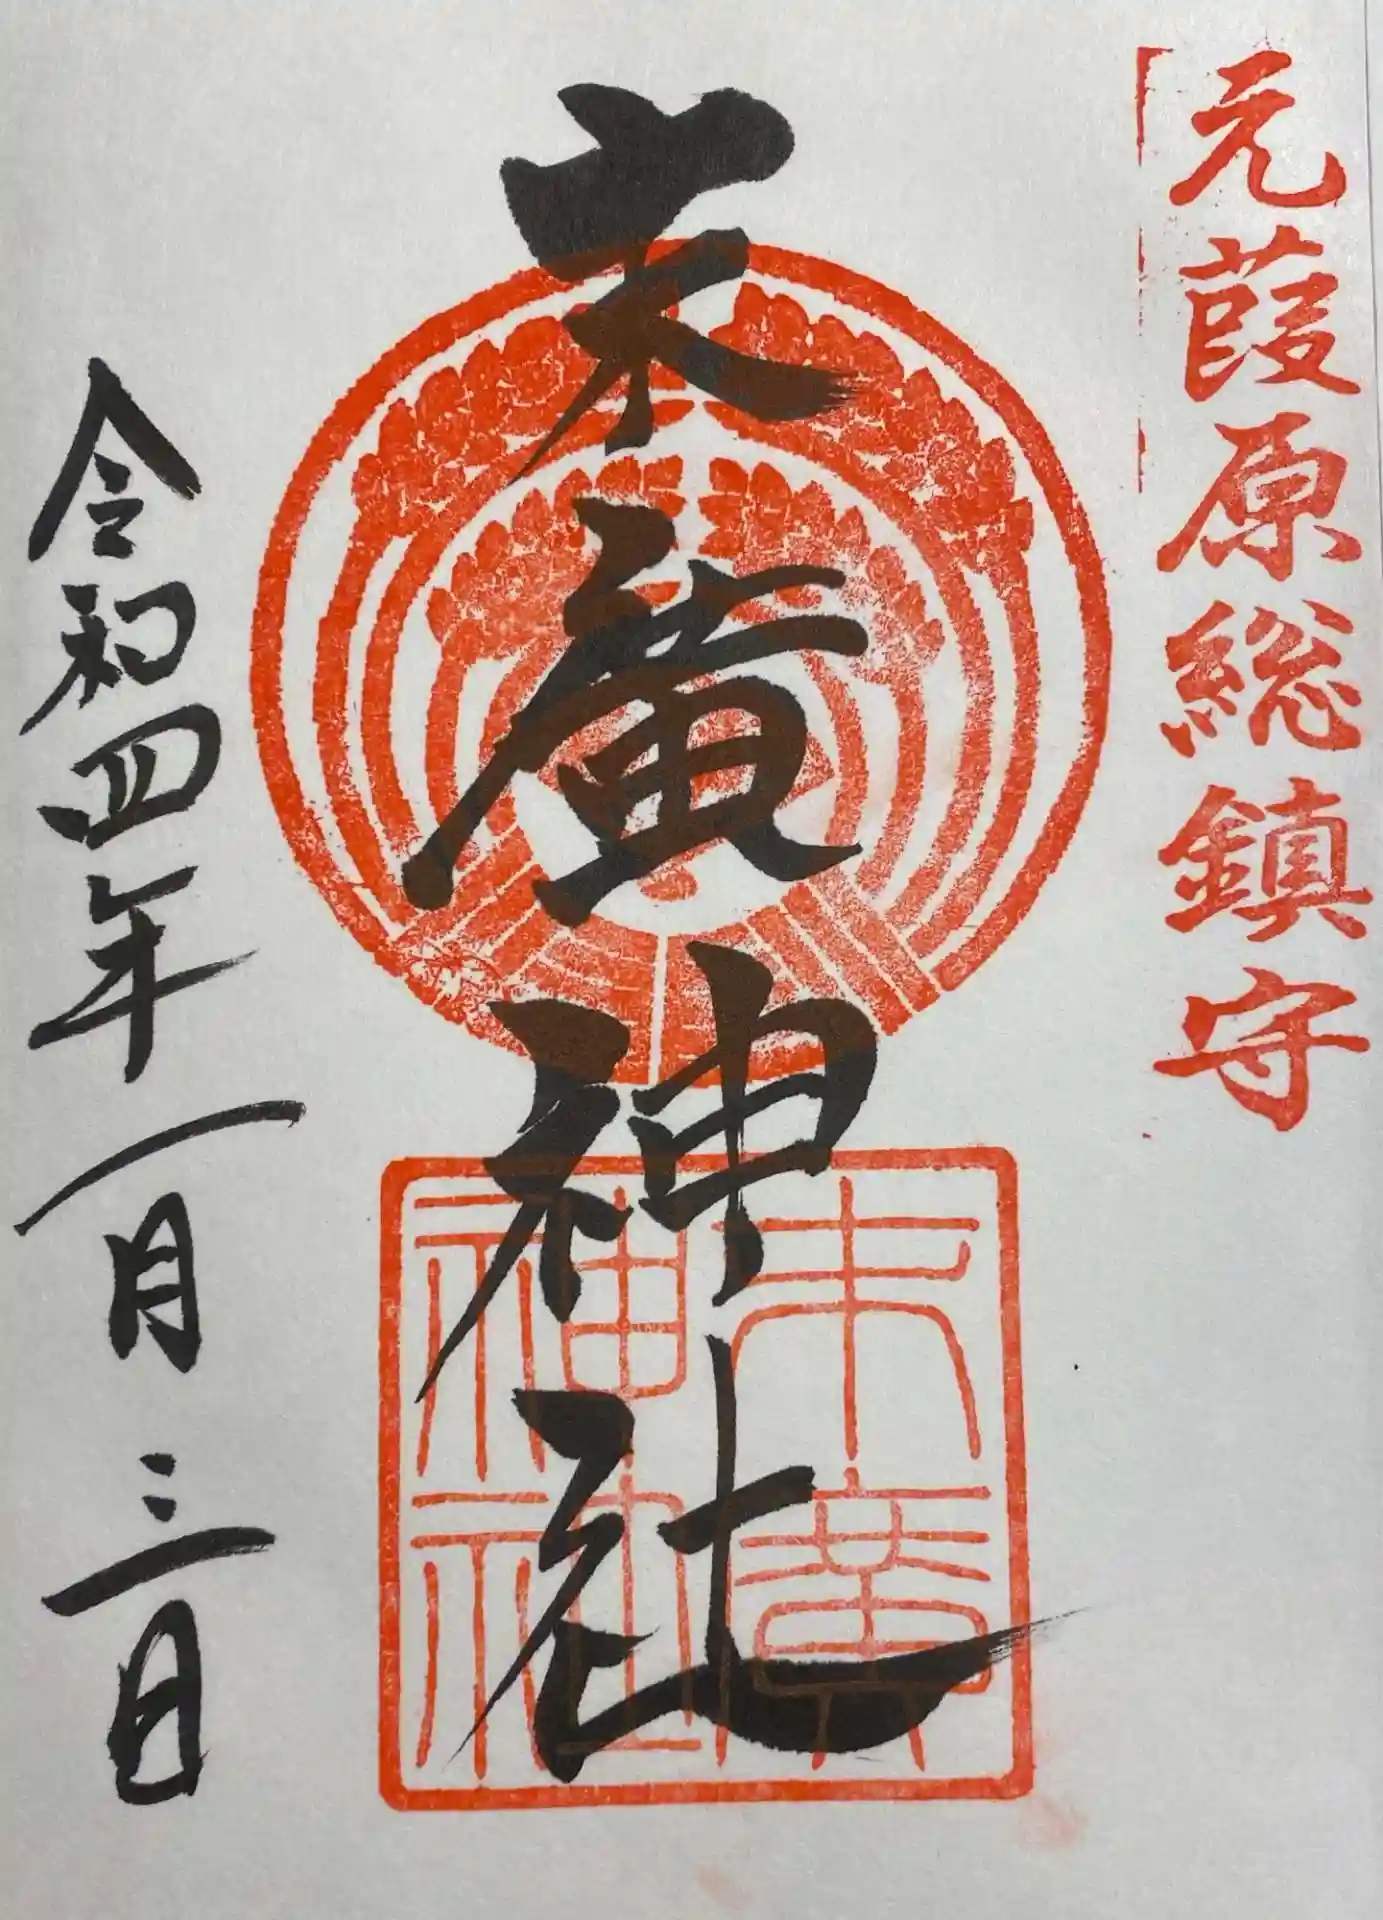 元葭原総鎮守
末廣神社
末廣
神社
令和四年一月三日